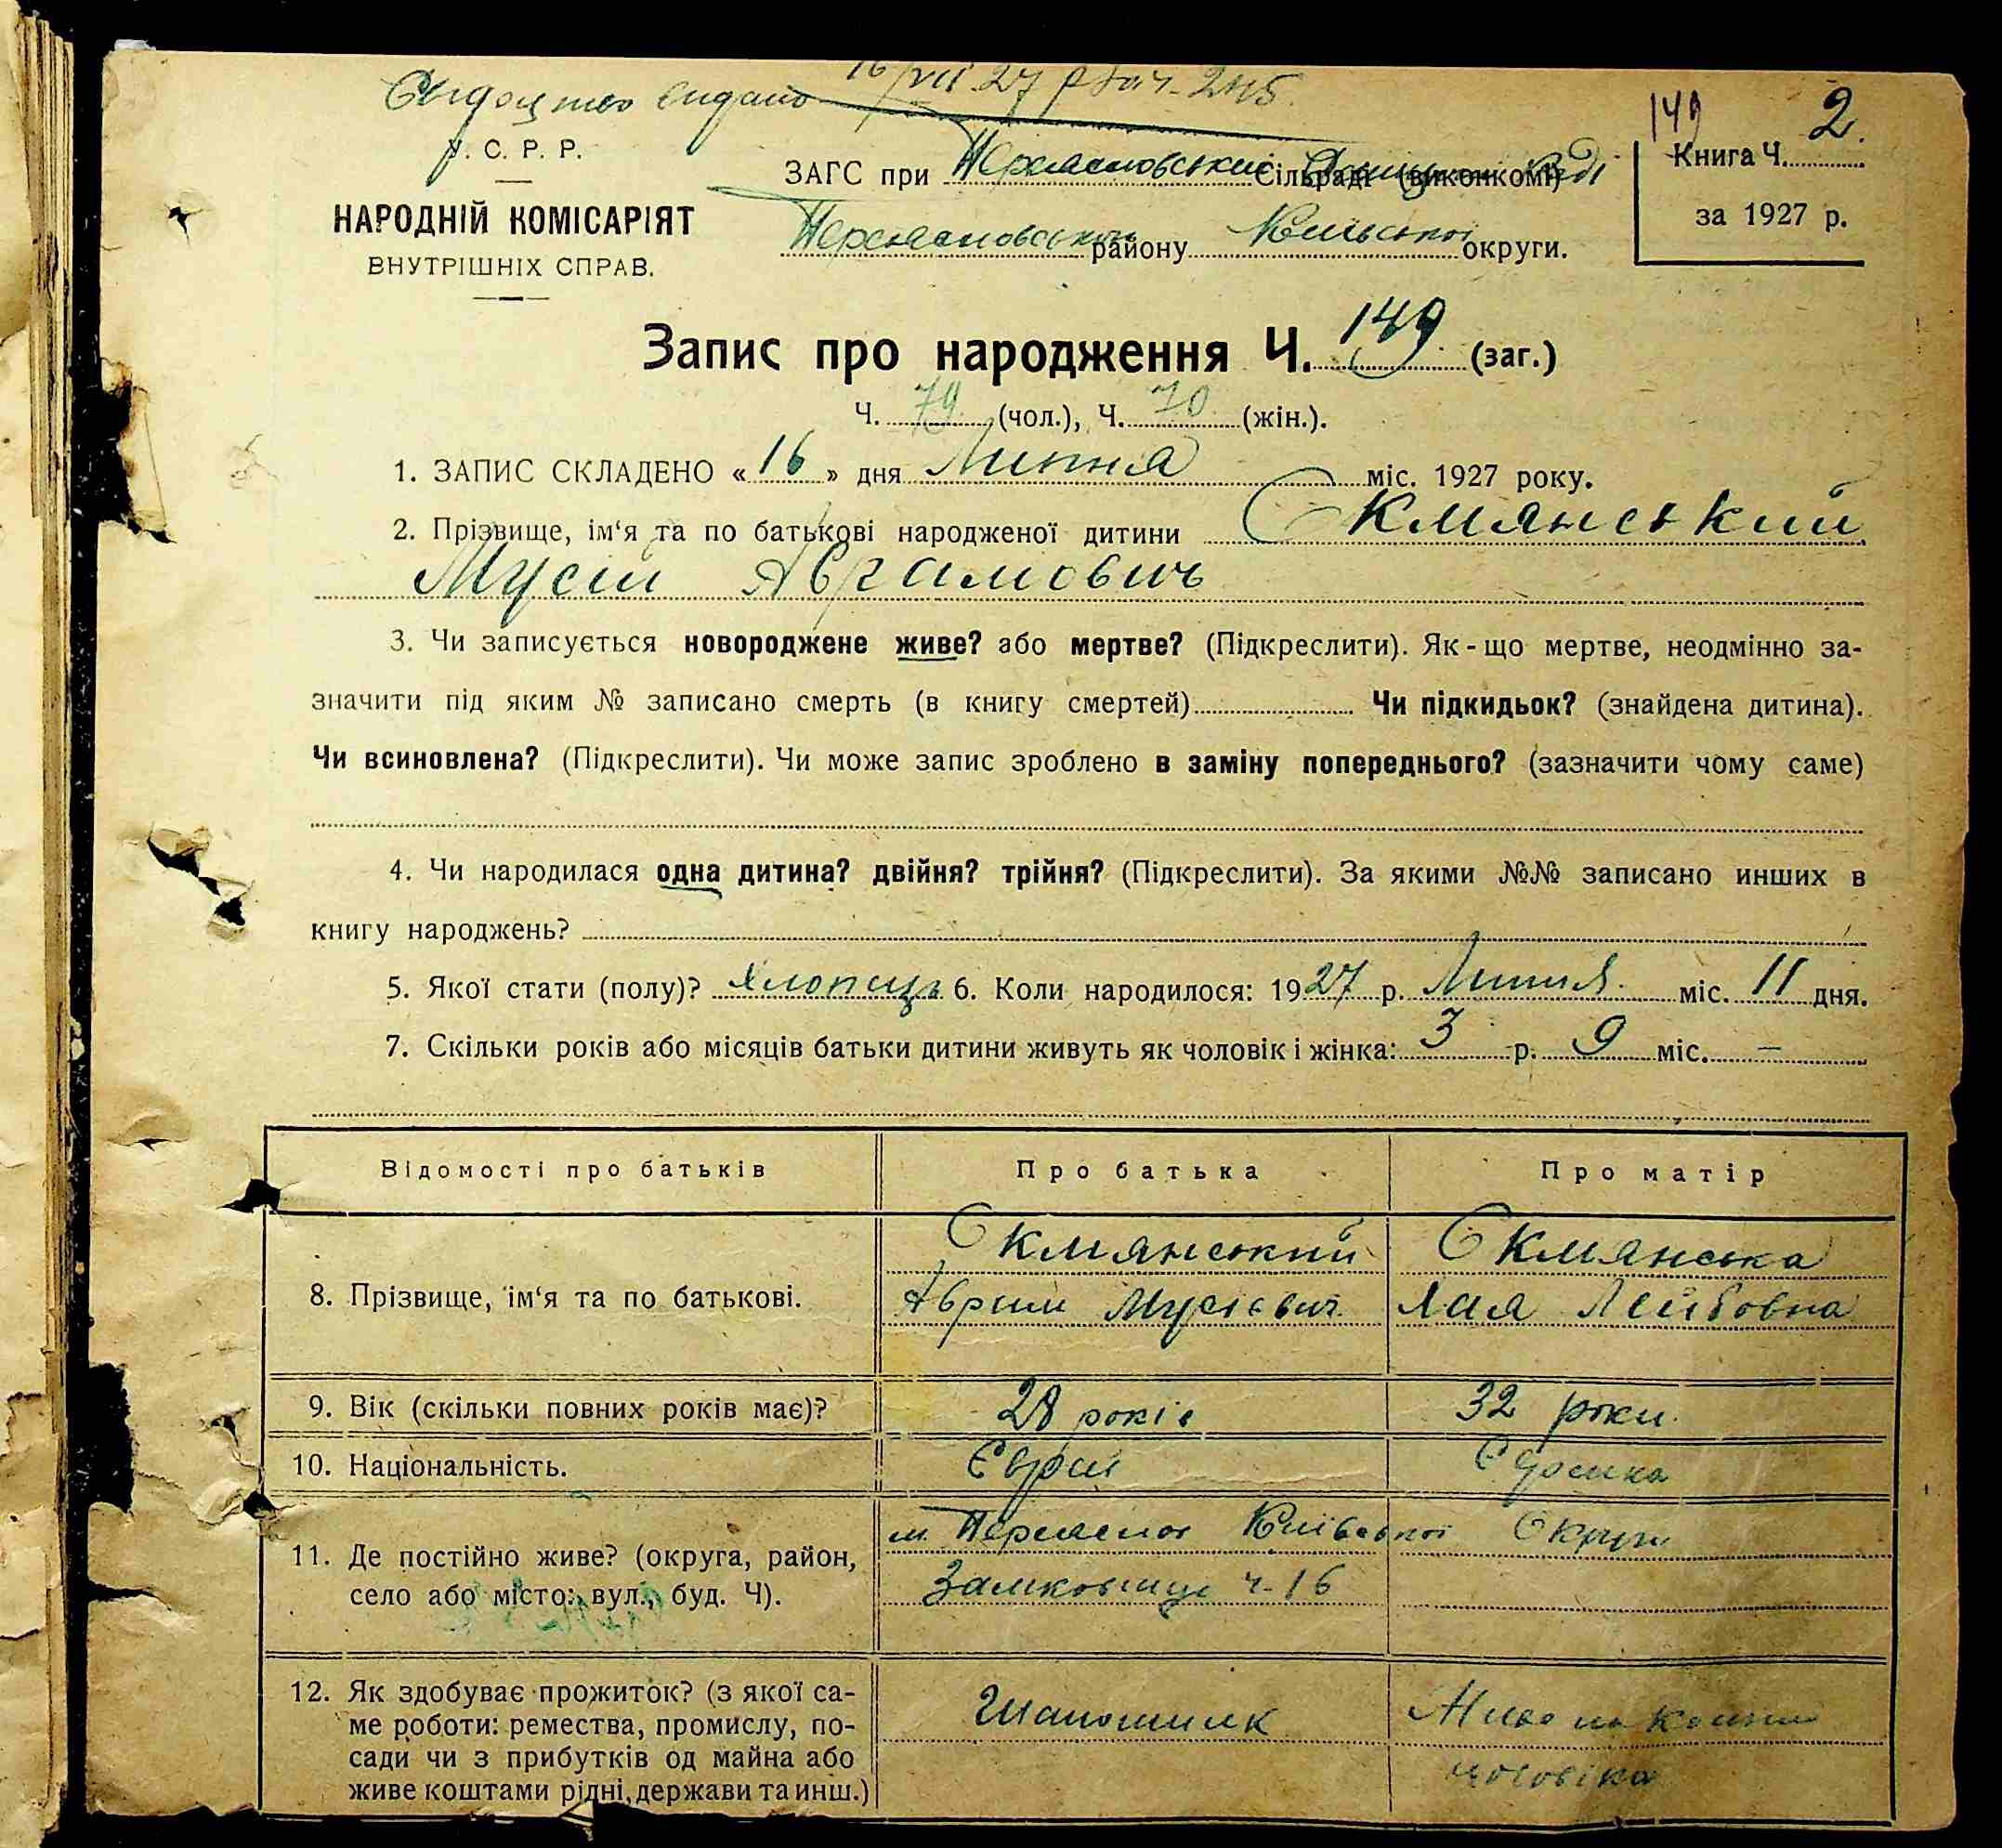 Свідоцтво видано 16/VII.27 р за ч. 245.
149
2.
У. С. Р. Р.
НАРОДНІЙ КОМІСАРІЯТ
ВНУТРІШНІХ СПРАВ.
ЗАГС при Сільраді (виконкомі)
району Київської округи.
Книга Ч.
за 1927 р.
Запис про народження Ч. 149 (заг.)
Ч. 79 (чол.), Ч. 70 (жін.).
1. ЗАПИС СКЛАДЕНО « 16 » дня Липня міс. 1927 року.
2. Прізвище, ім‘я та по батькові народженої дитини Окмянський
Мусій Аврамович
3. Чи записується новороджене живе? або мертве? (Підкреслити). Як-що мертве, неодмінно за-
значити під яким № записано смерть (в книгу смертей) Чи підкидьок? (знайдена дитина).
Чи всиновлена? (Підкреслити). Чи може запис зроблено в заміну попереднього? (зазначити чому саме)
4. Чи народилася одна дитина? двійня? трійня? (Підкреслити). За якими №№ записано инших в
книгу народжень?
5. Якої стати (полу)? хлопець 6. Коли народилося: 1927 р. Липня міс. 11 дня.
7. Скільки років або місяців батьки дитини живуть як чоловік і жінка: 3 р. 9 міс. —
Відомості про батьків Про батька Про матір
8. Прізвище, ім‘я та по батькові. Окмянський Окмянська
Аврам Мусієвич Хая Лейбовна
9. Вік (скільки повних років має)? 28 років 32 роки
10. Національність. Єврей Єврейка
11. Де постійно живе? (округа, район, м. Переяслов Київської Округи
село або місто: вул., буд. Ч). ч. 16
12. Як здобуває прожиток? (з якої са- Шапошник Живе на кошти
ме роботи: ремества, промислу, по- чоловіка
сади чи з прибутків од майна або
живе коштами рідні, держави та инш.)